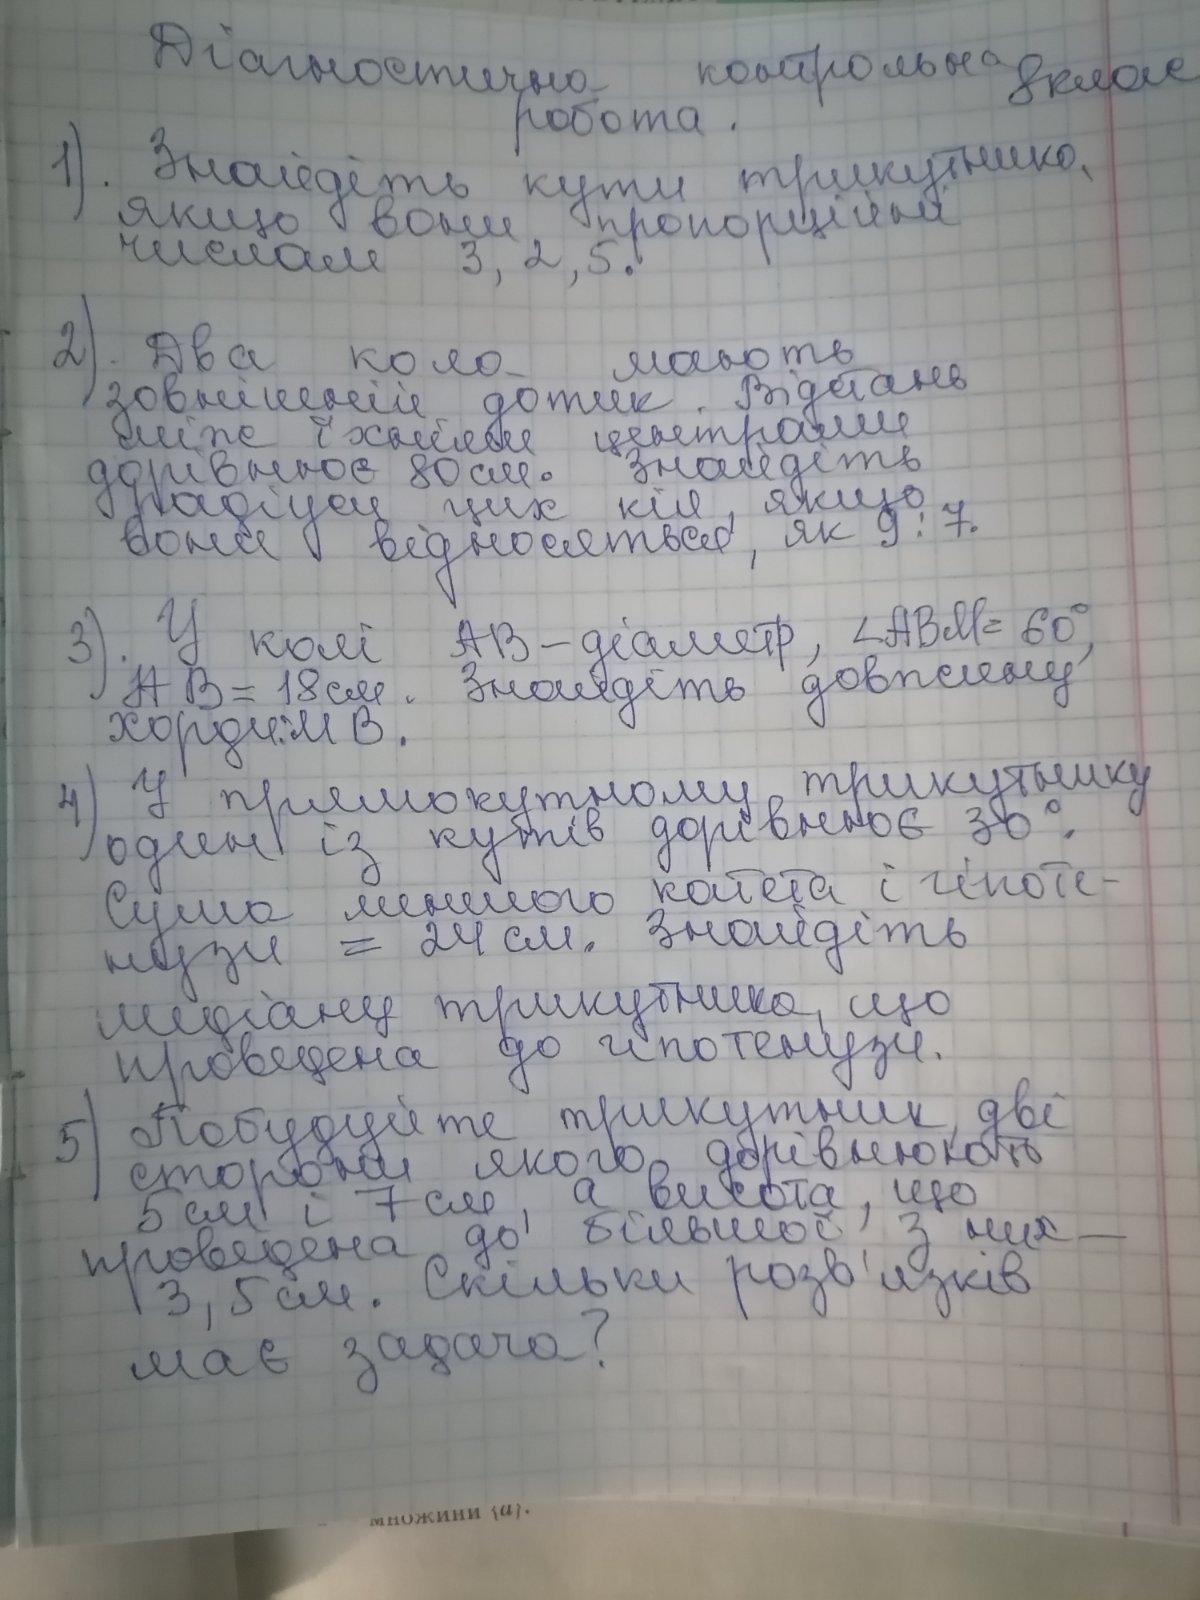 Діагностична контрольна 8 клас
робота.
1). Знайдіть кути трикутника,
якщо вони пропорційні
числам 3, 2, 5.
2). Два кола мають
зовнішній дотик. Відстань
між їхніми центрами
дорівнює 80 см. Знайдіть
радіуси цих кіл, якщо
вони відносяться, як 9:7.
3). У колі AB – діаметр, ∠ABM = 60°,
AB = 18 см. Знайдіть довжину
хорди MB.
4) У прямокутному трикутнику
один із кутів дорівнює 30°.
Сума меншого катета і гіпоте-
нузи = 24 см. Знайдіть
медіану трикутника, що
проведена до гіпотенузи.
5) Побудуйте трикутник, дві
сторони якого дорівнюють
5 см і 7 см, а висота, що
проведена до більшої з них –
3,5 см. Скільки розв'язків
має задача?
множини {a}.